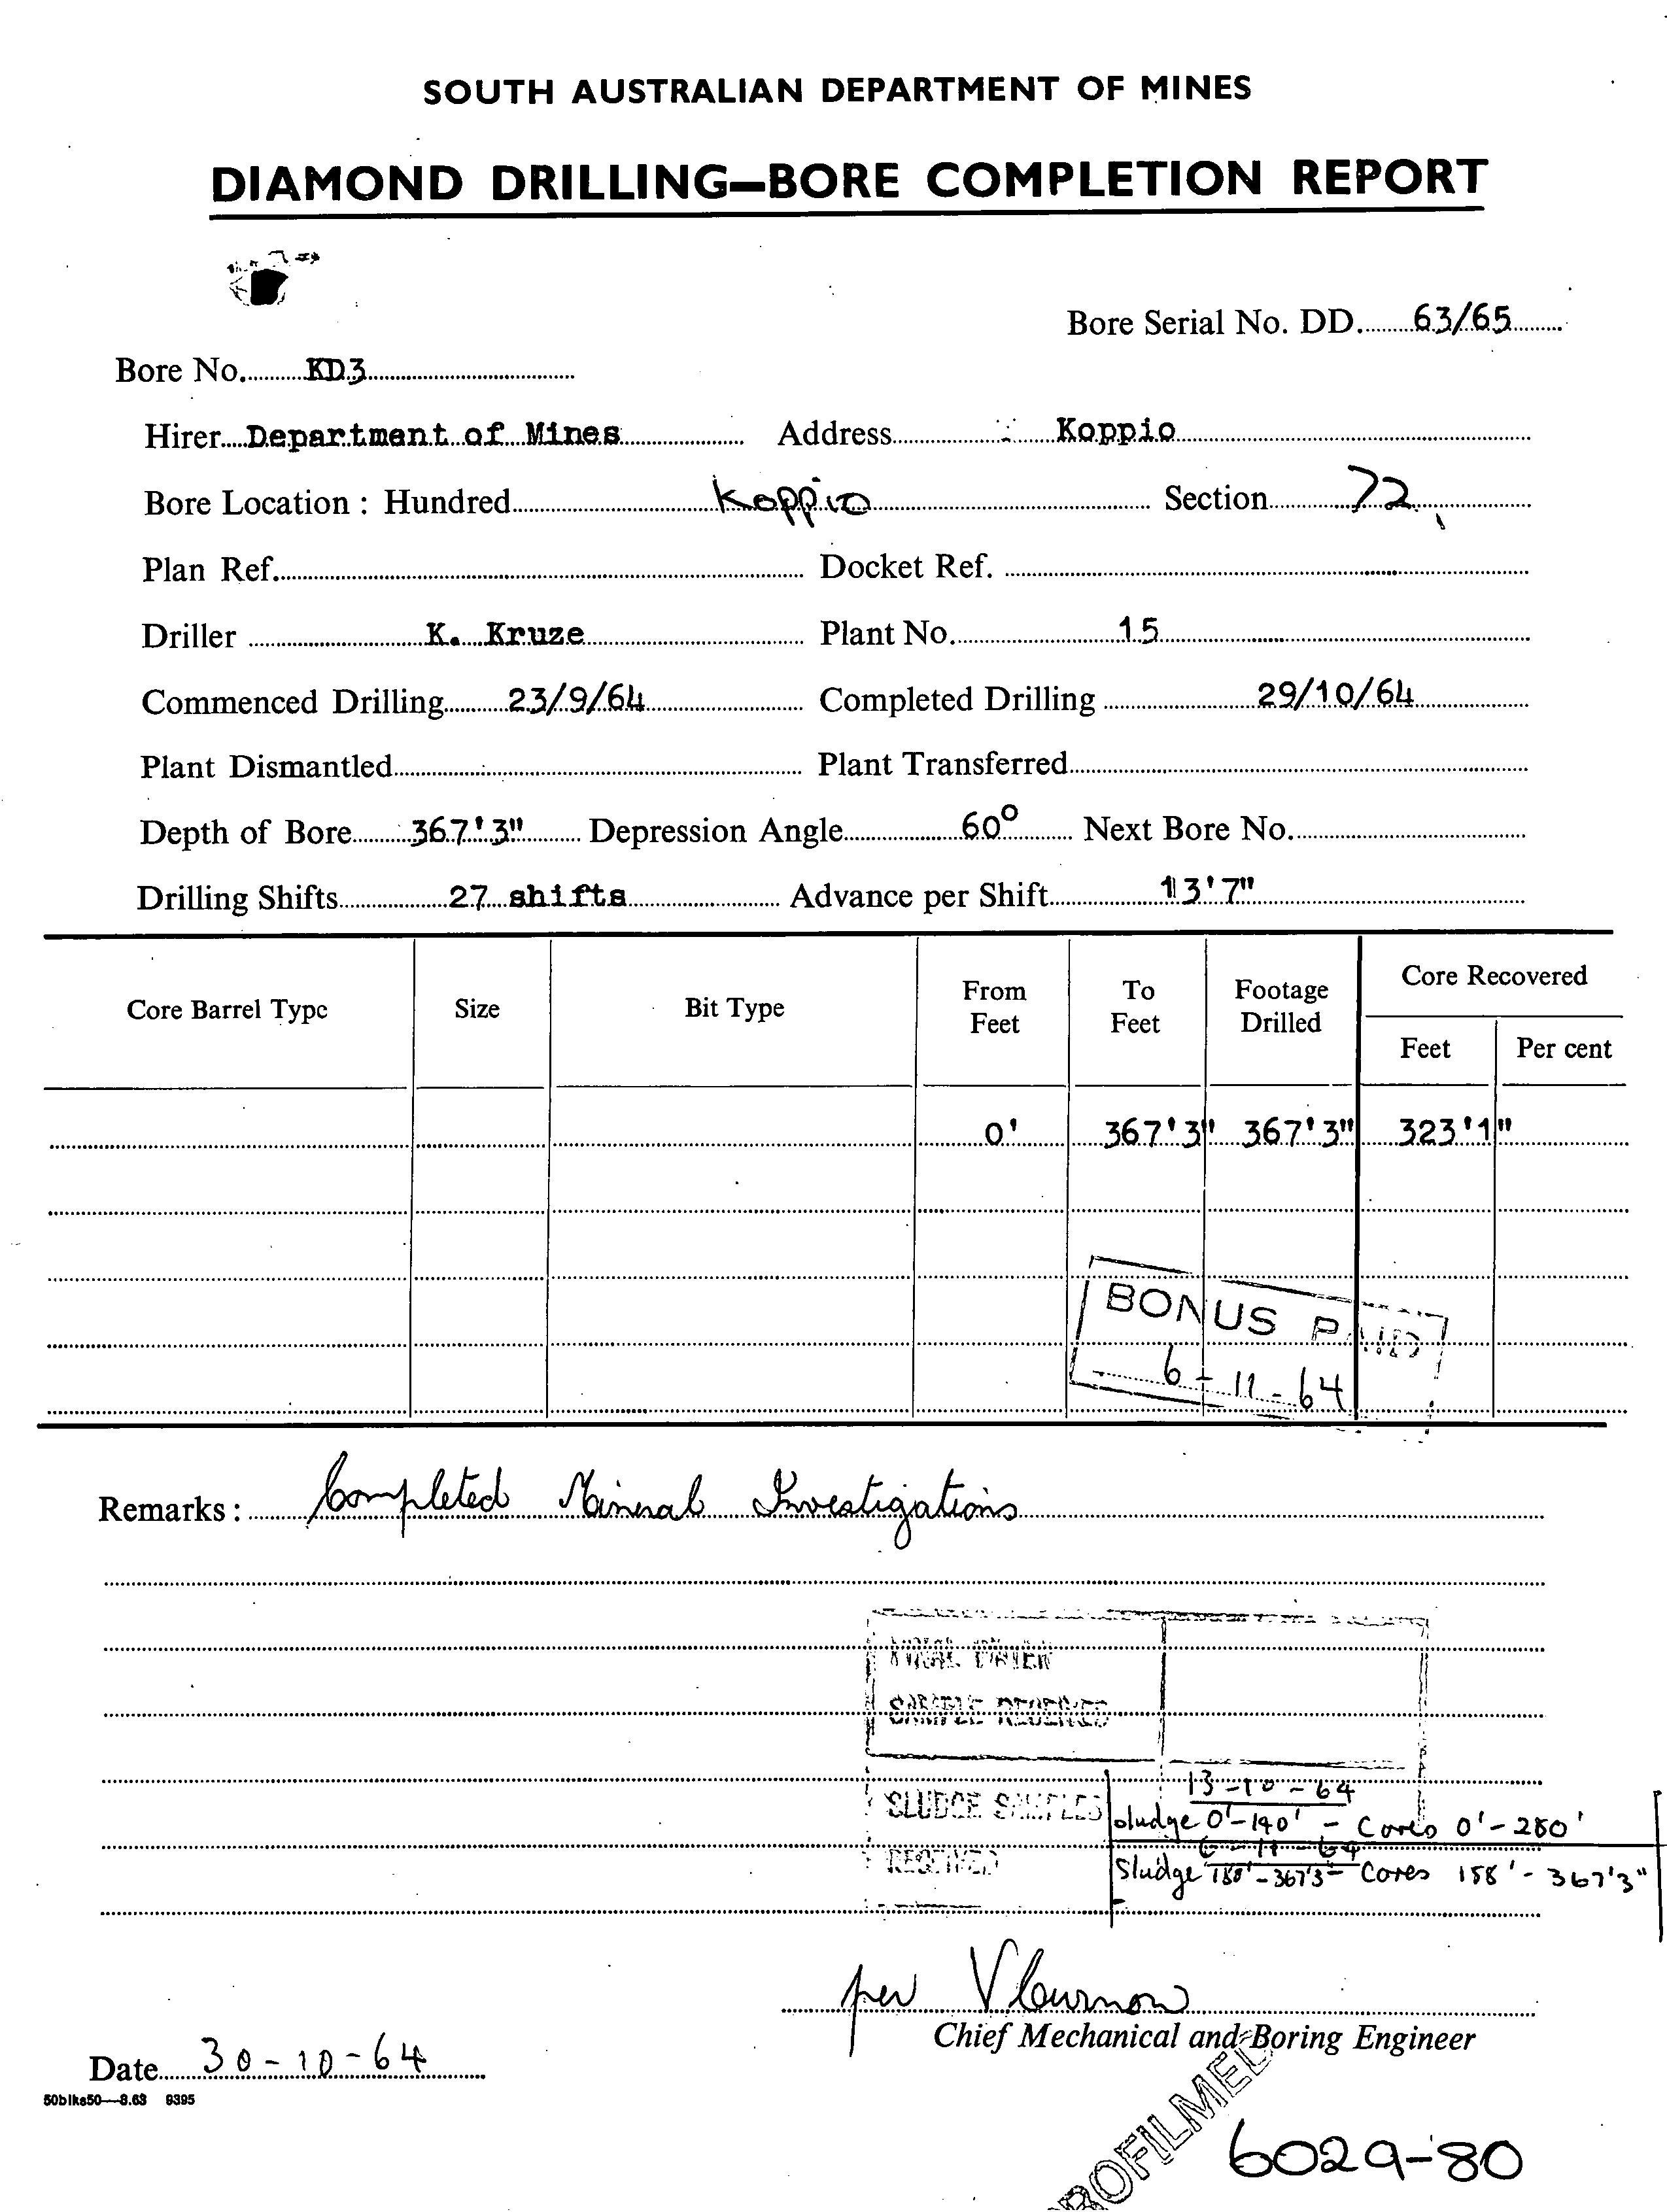 SOUTH AUSTRALIAN DEPARTMENT OF MINES
DIAMOND DRILLING—BORE COMPLETION REPORT
Bore Serial No. DD. 63/65
Bore No. KD3
Hirer Department of Mines Address Koppio
Bore Location : Hundred Koppio Section 72
Plan Ref. Docket Ref.
Driller K. Kruze Plant No. 15
Commenced Drilling 23/9/64 Completed Drilling 29/10/64
Plant Dismantled Plant Transferred
Depth of Bore 367'3" Depression Angle 60° Next Bore No.
Drilling Shifts 27 shifts Advance per Shift 13'7"
Core Barrel Type Size Bit Type From Feet To Feet Footage Drilled Core Recovered
Feet Per cent
0' 367'3" 367'3" 323'1"
BONUS PAID
6-11-64
Remarks : Completed Mineral Investigations
SAMPLE RECEIVED
13-10-64
SLUDGE SAMPLES sludge 0'-190' - Cores 0'-280'
6-11-64
RECEIVED Sludge 188'-367'3" Cores 158'-367'3"
per
Chief Mechanical and Boring Engineer
Date 30-10-64
50blks50—8.63 8395
6029-80